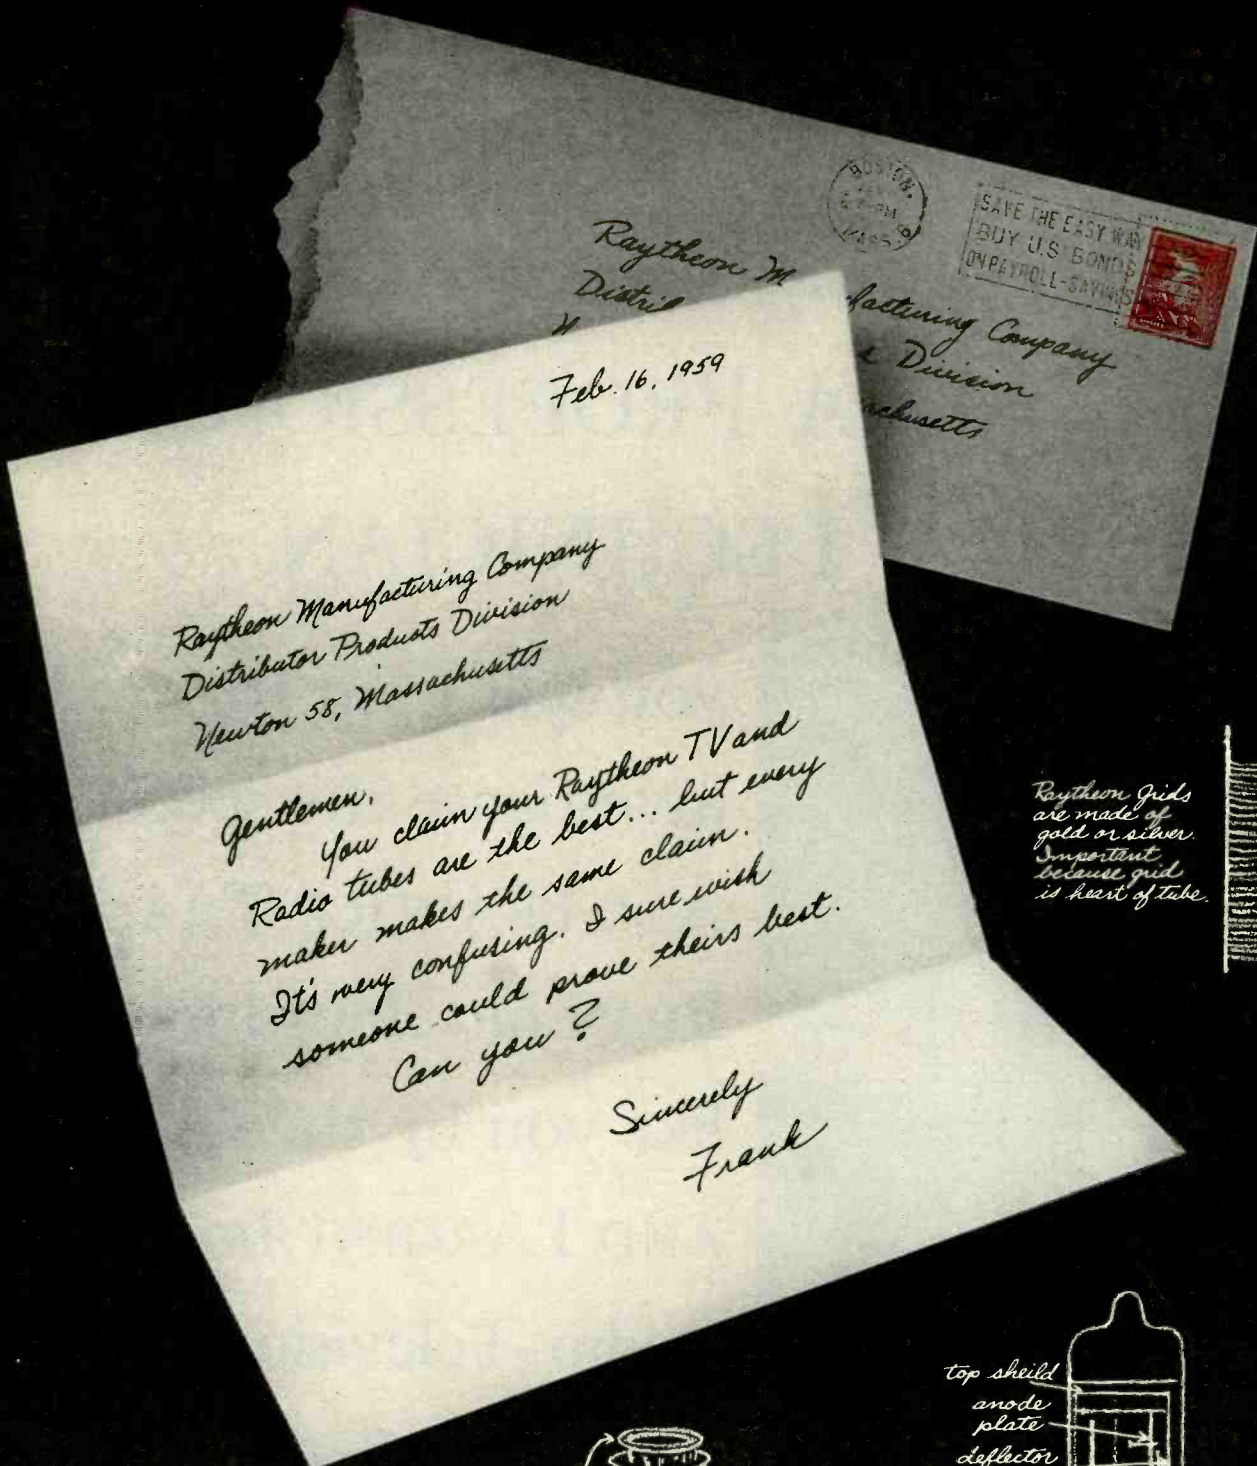 BOSTON,
PM
MASS.
SAVE THE EASY WAY
BUY U.S BONDS
ON PAYROLL-SAVINGS
Raytheon M facturing Company
Distrib Division
achusetts
Feb. 16, 1959
Raytheon Manufacturing Company
Distributor Products Division
Newton 58, Massachusetts
Gentlemen,
You claim your Raytheon TV and
Radio tubes are the best... but every
maker makes the same claim.
It's very confusing. I sure wish
someone could prove theirs best.
Can you?
Sincerely
Frank
Raytheon Grids
are made of
gold or silver.
Important
because grid
is heart of tube.
top sheild
anode
plate
deflector